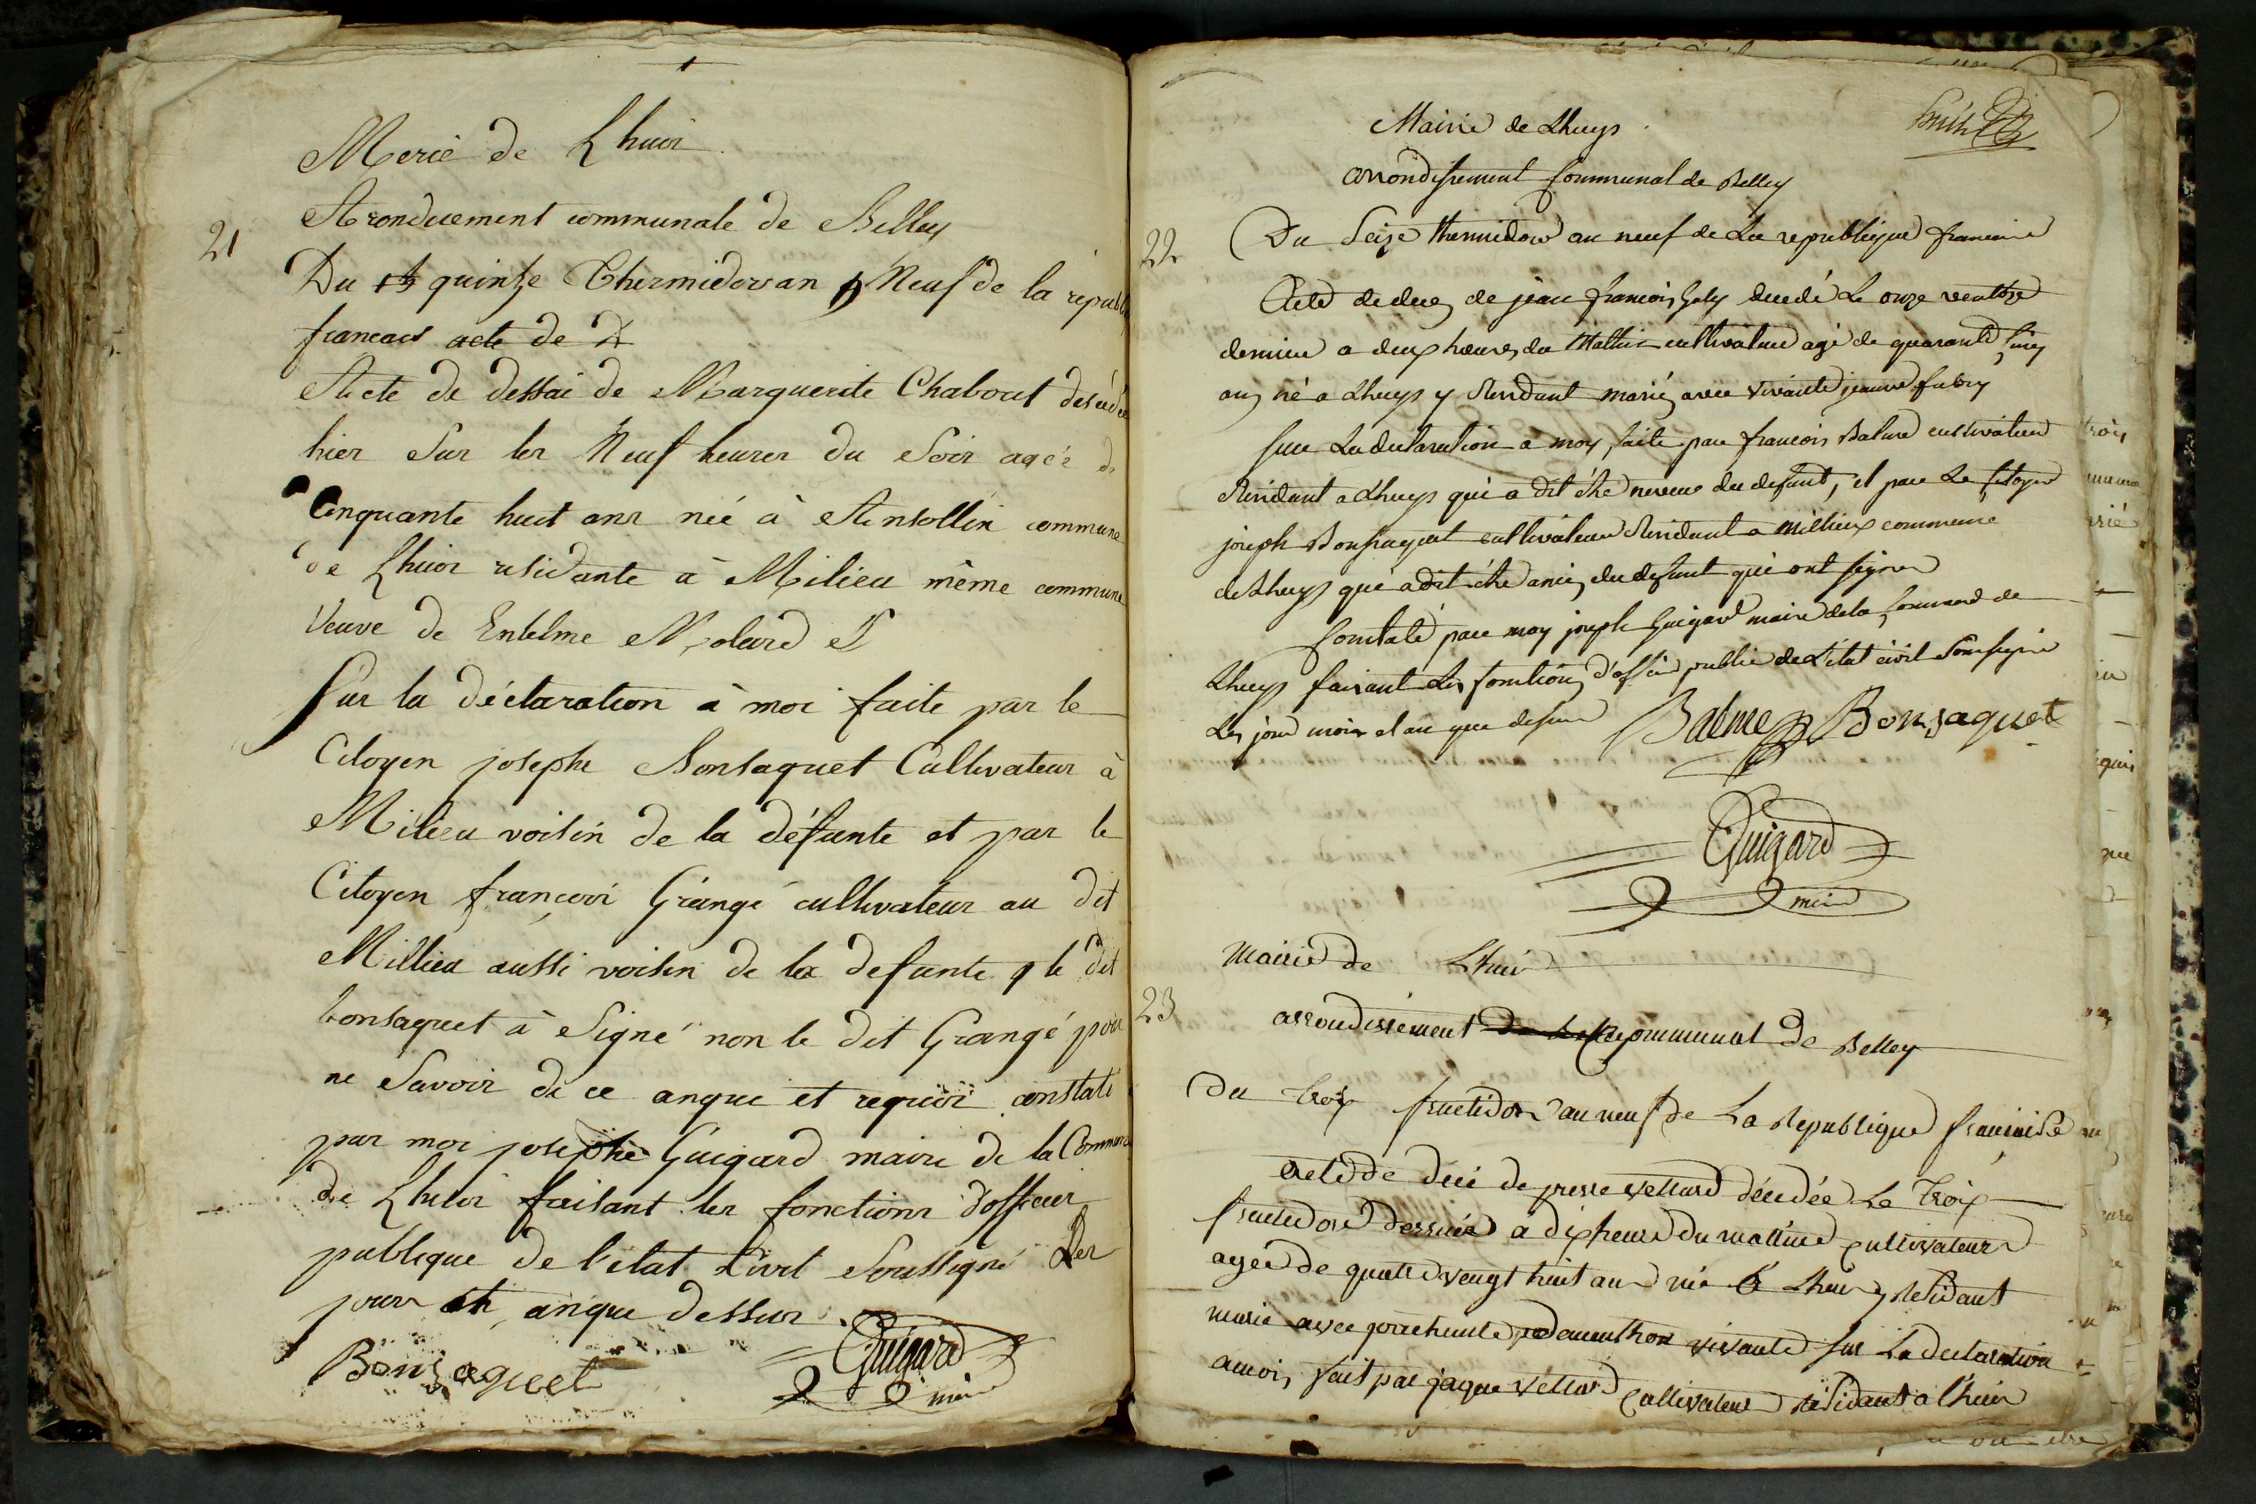 Merie de Lhuis
21
Arondicement communale de Belley
Du quintze Thermidor an Neuf de la republi
francais acte de d
Acte de dessai de Marguerite Chabout desédée
hier Sur les Neuf heures du Soir ageé de
Cinquante huit ans née à Ansollin commune
de Lhuis residante à Milieu même commune
Veuve de Entelme
Sur la déclaration à moi faite par le
Citoyen josephe Bonsaquet Cultivateur à
Milieu voisin de la défunte et par le
Citoyen françois Grangé cultivateur au dit
Millieu aussi voisin de la defunte q le dit
bonsaquet à Signé non le dit Grangé pour
ne Savoir de ce anque et requis constaté
par moi josephe Guigard maire de la Commune
de Lhuis faisant les fonctions d'officier
publique de l'état Civil Soussigné Les
jour et anque dessus
Bonsaquet Guigard
maire
Mairie de Lhuys
arrondissement Communal de Belley
22
Du Seize thermidor an neuf de La republique francaise
Acte de deces de jean francois Galy decedé Le onze ventose
dernier a deux heures du Mattin cultivateur agé de quarante cinq
ans né a Lhuys y Residant marié avec vivante jeanne fabry
sur La declaration a moy faite par francois Balme cultivateur
Residant a Lhuys qui a dit étre neveu du defunt, et par Le Citoyen
joseph Bonsaquet cultivateur Residant a millieux commune
de Lhuys qui a dit étre ami du defunt qui ont signer
Constaté par moy joseph Guigard maire de la Commune de
Lhuys faisant Les fonctions d'officier public de L'état civil Soussigné
Les jour mois et an que dessus Balme Bonsaquet
Guigard
maire
Mairie de Lhuis
23
arrondissement communal de Belley
Du trois fructidor an neuf de La Republique francaise
acte de deces de pierre vettard décedée Le trois
fructidor dernier a dix heure du mattin cultivateur
ageé de quatre vengt huit an né a Lhuis y Residant
marie avec vivante sur La declaration
a moi, fait par jaque vettard Cultivateur Résidant a l'huis